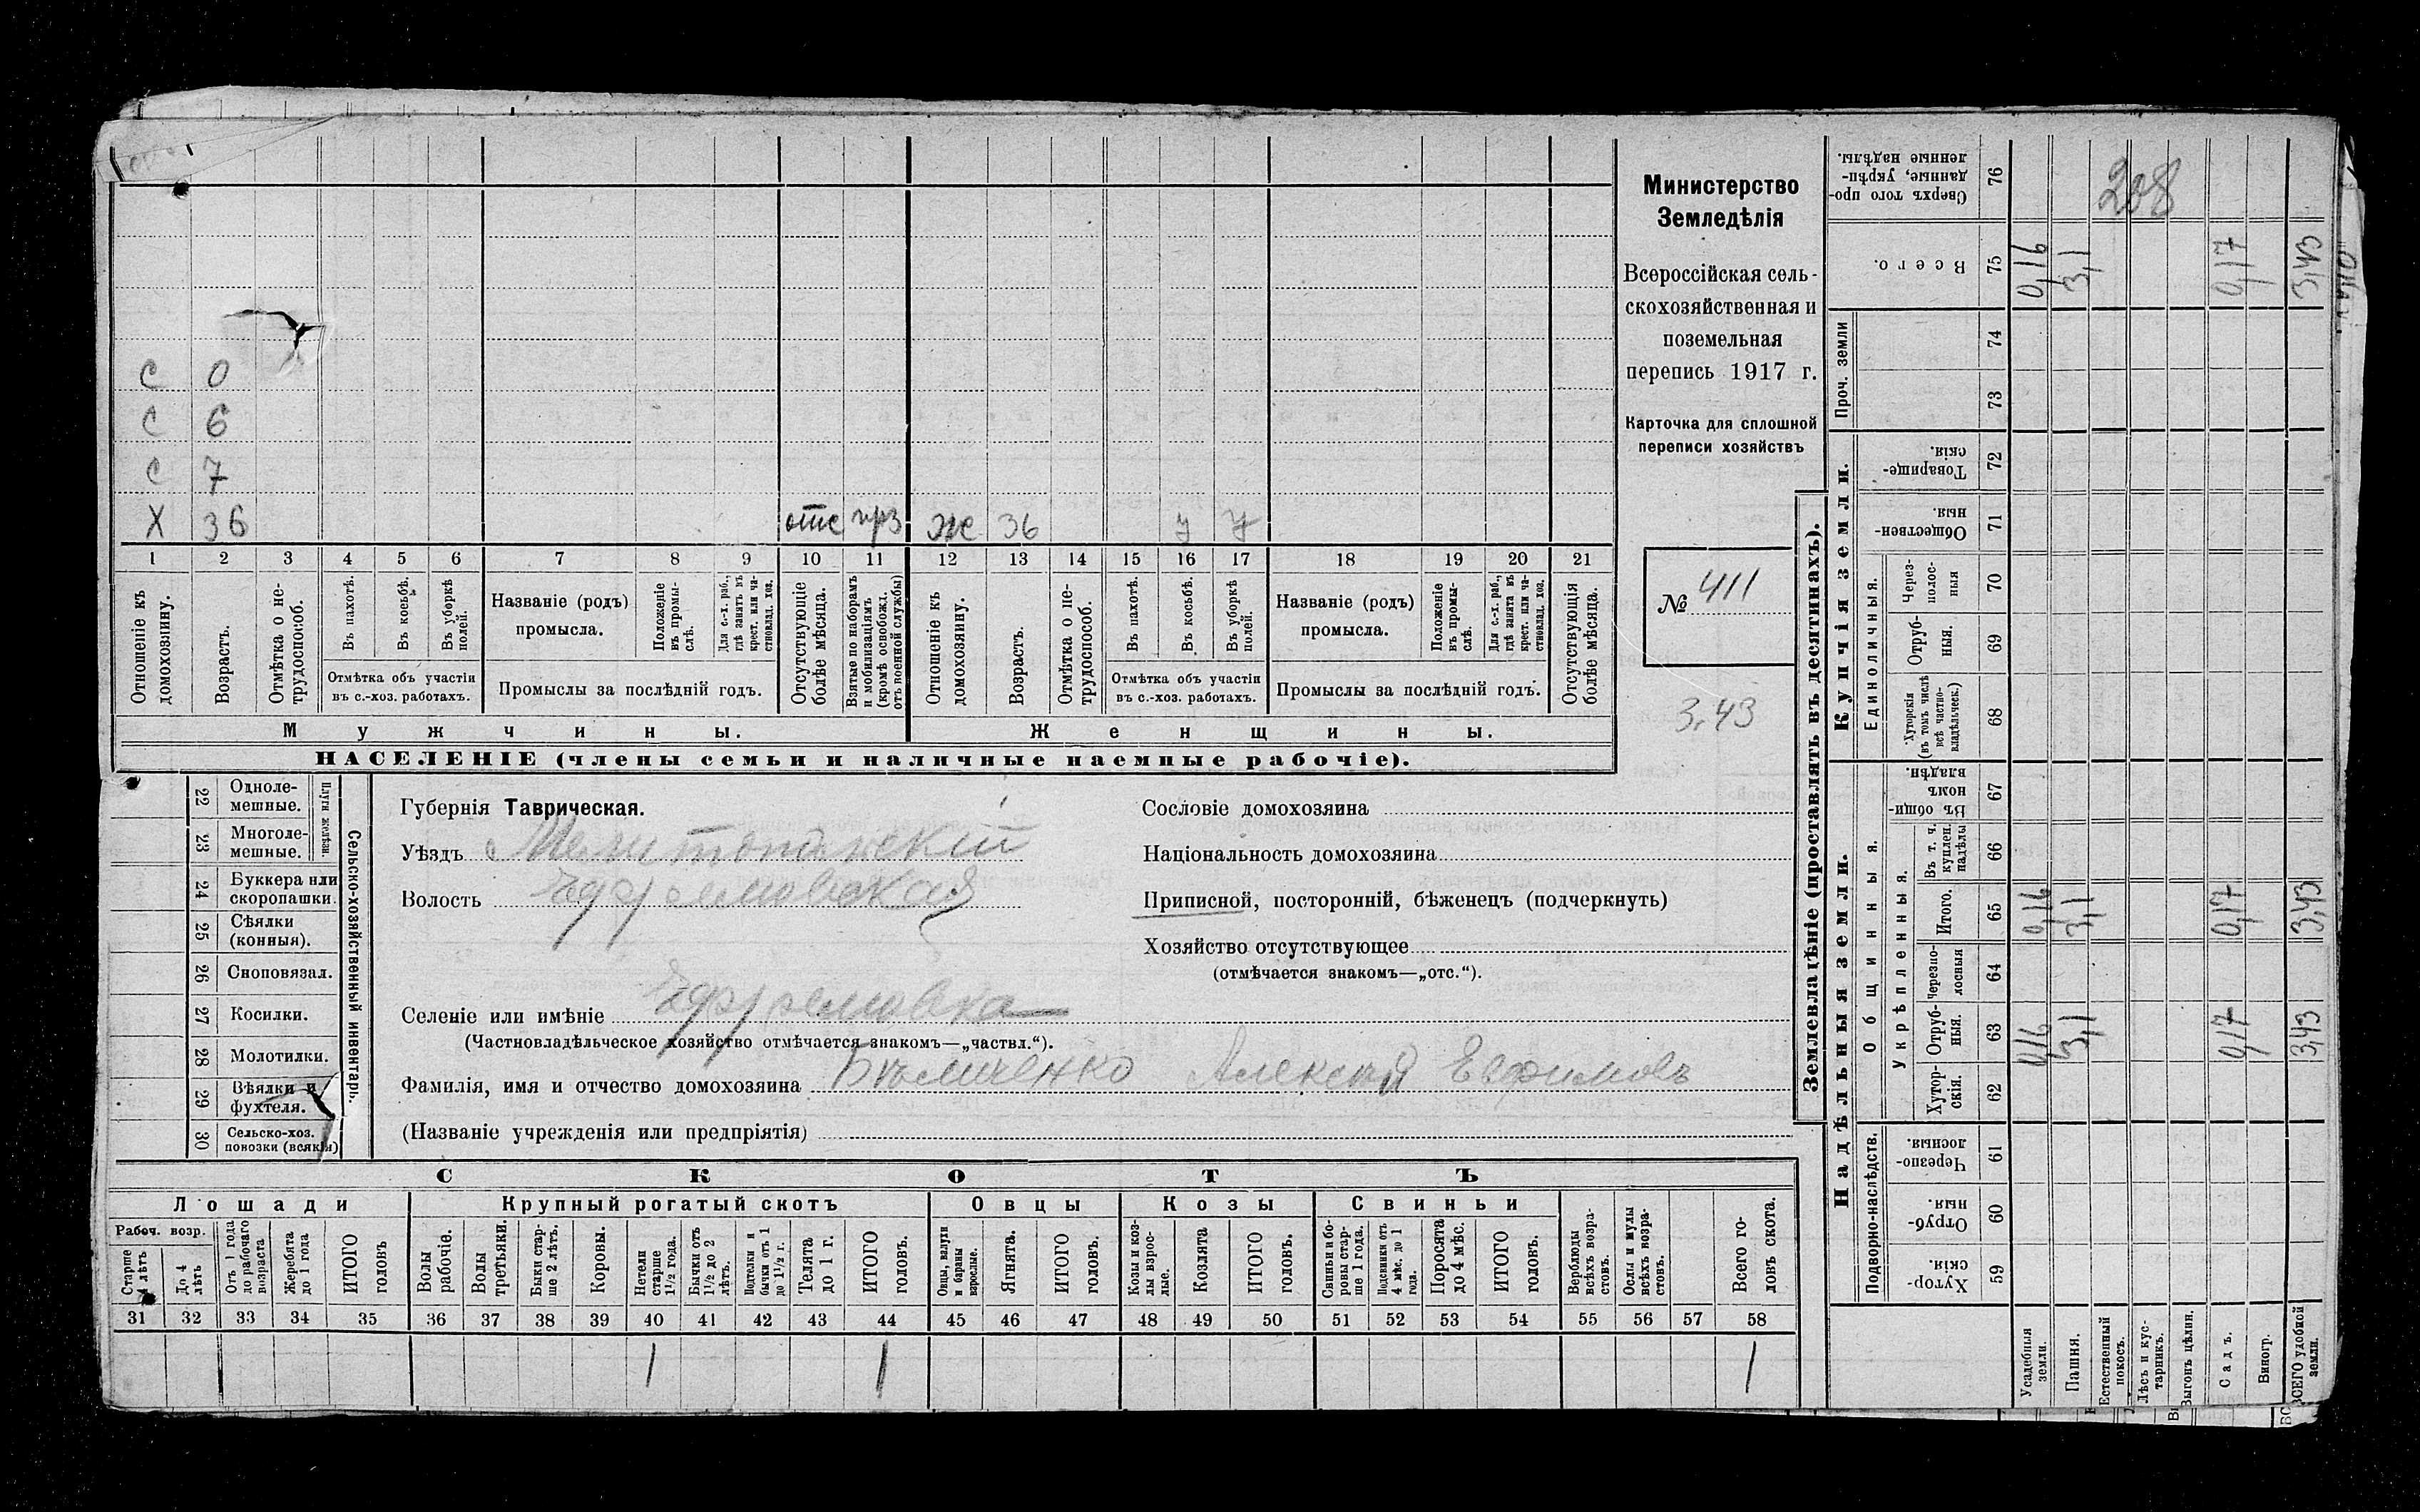 С 0
С 6
С 7
Х 36 отс прз Ж 36 у у
1 2 3 4 5 6 7 8 9 10 11 12 13 14 15 16 17 18 19 20 21
Отношеніе къ домохозяину.
Возрастъ.
Отмѣтка о нетрудоспособ.
Въ пахотѣ.
Въ косьбѣ.
Въ уборкѣ полей.
Отмѣтка объ участіи
въ с.-хоз. работахъ.
Названіе (родъ)
промысла.
Положеніе въ промыслѣ.
Для с.-х. раб., гдѣ занятъ въ крест. или частновлад. хоз.
Промыслы за послѣдній годъ.
Отсутствующіе болѣе мѣсяца.
Взятые по наборамъ и мобилизаціямъ (кромѣ освобожд. отъ военной службы)
Отношеніе къ домохозяину.
Возрастъ.
Отмѣтка о нетрудоспособ.
Въ пахотѣ.
Въ косьбѣ.
Въ уборкѣ полей.
Отмѣтка объ участіи
въ с.-хоз. работахъ.
Названіе (родъ)
промысла.
Положеніе въ промыслѣ.
Для с.-х. раб., гдѣ занята въ крест. или частновлад. хоз.
Промыслы за послѣдній годъ.
Отсутствующія болѣе мѣсяца.
Мужчины.
Женщины.
НАСЕЛЕНІЕ (члены семьи и наличные наемные рабочіе).
Министерство
Земледѣлія
Всероссійская сель-
скохозяйственная и
поземельная
перепись 1917 г.
Карточка для сплошной
переписи хозяйствъ
№ 411
3,43
Сельско-хозяйственный инвентарь.
Плуги желѣзн.
22 Одноле-
мешные.
23 Многоле-
мешные.
24 Буккера или
скоропашки.
25 Сѣялки
(конныя).
26 Сноповязал.
27 Косилки.
28 Молотилки.
29 Вѣялки и
фухтеля.
30 Сельско-хоз.
повозки (всякія)
Губернія Таврическая.
Уѣздъ Мелитопольскій
Волость Ефремовская
Селеніе или имѣніе Ефремовка
(Частновладѣльческое хозяйство отмѣчается знакомъ—„частвл.“).
Фамилія, имя и отчество домохозяина Алексѣй Ефимовъ
(Названіе учрежденія или предпріятія)
Сословіе домохозяина
Національность домохозяина
Приписной, посторонній, бѣженецъ (подчеркнуть)
Хозяйство отсутствующее
(отмѣчается знакомъ—„отс.“).
СКОТЪ
Лошади
Крупный рогатый скотъ
Овцы
Козы
Свиньи
Рабоч. возр.
Старше 4 лѣтъ
До 4 лѣтъ
Отъ 1 года до рабочаго возраста
Жеребята до 1 года
ИТОГО головъ
Волы рабочіе.
Волы третьяки.
Быки старше 2 лѣтъ.
Коровы.
Нетели старше 1½ года.
Бычки отъ 1½ до 2 лѣтъ.
Подтелки и бычки отъ 1 до 1½ г.
Телята до 1 г.
ИТОГО головъ.
Овцы, валухи и бараны взрослые.
Ягнята.
ИТОГО головъ.
Козы и козлы взрослые.
Козлята
ИТОГО головъ.
Свиньи и боровы старше 1 года.
Подсвинки отъ 4 мѣс. до 1 года.
Поросята до 4 мѣс.
ИТОГО головъ.
Верблюды всѣхъ возрастовъ.
Ослы и мулы всѣхъ возрастовъ.
Всего головъ скота.
31 32 33 34 35 36 37 38 39 40 41 42 43 44 45 46 47 48 49 50 51 52 53 54 55 56 57 58
1 1 1
Землевладѣніе (проставлять въ десятинахъ).
Надѣльныя земли.
Купчія земли.
Проч. земли
Подворно-наслѣдств.
Общинныя.
Укрѣпленныя.
Единоличныя.
Сверхъ того проданные, укрѣпленные надѣлы. 76
208
Всего. 75 0,16 3,1 0,17 3,43
74
73
Товарищескія. 72
Общественныя. 71
Черезполосныя 70
Отрубныя. 69
Хуторскія (въ томъ числѣ всѣ частновладѣльческ.) 68
Въ общинномъ владѣн. 67
Въ т. ч. куплен. надѣлы 66
Итого. 65 0,16 3,1 0,17 3,43
Черезполосныя 64
Отрубныя. 63 0,16 3,1 0,17 3,43
Хуторскія. 62
Черезполосныя. 61
Отрубныя 60
Хуторскія. 59
Усадебныя земли.
Пашня.
Естественный покосъ.
Лѣсъ и кустарникъ.
Выгонъ цѣлин.
Садъ.
Виногр.
ВСЕГО удобной земли.